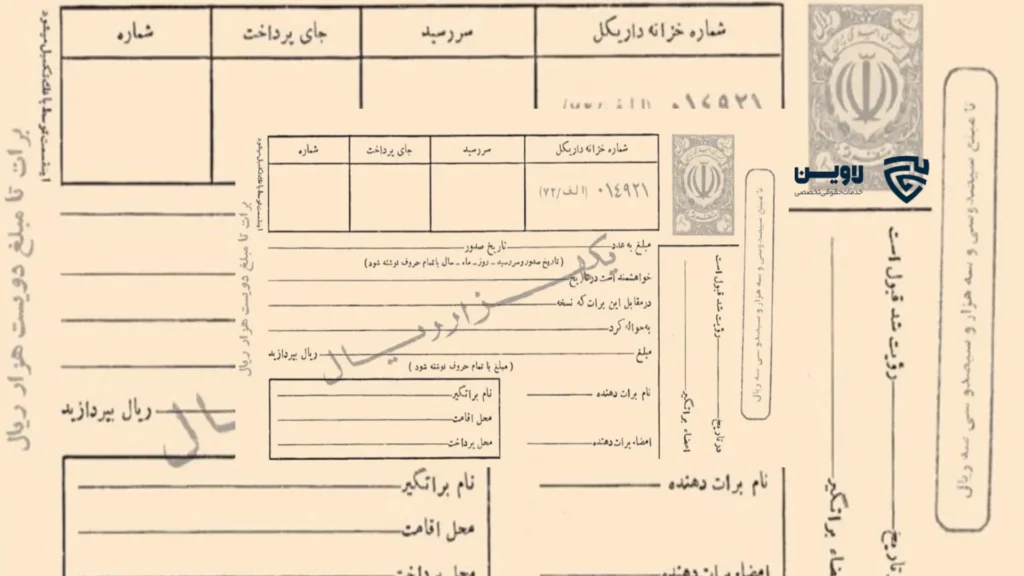 شماره خزانه داریکل
سررسید
جای پرداخت
شماره
۰۱۴۹۲۱
لاوین
خدمات حقوقی تخصصی
شماره خزانه داریکل
سررسید
جای پرداخت
شماره
۰۱۴۹۲۱ (الف/۷۲)
مبلغ به عدد
تاریخ صدور
(تاریخ صدور و سررسید - روز - ماه - سال با تمام حروف نوشته شود)
خواهشمند است در تاریخ
در مقابل این برات که نسخه
به حواله کرد
مبلغ
ریال بپردازید
(مبلغ با تمام حروف نوشته شود)
یکهزار ریال
نام برات دهنده
امضاء برات دهنده
نام براتگیر
محل اقامت
محل پرداخت
رؤیت شد قبول است
در تاریخ
امضاء براتگیر
تا مبلغ سیصد و سی و سه هزار و سیصد و سی سه ریال
برات تا مبلغ دویست هزار ریال
رؤیت شد قبول است
تاریخ
براتگیر
تا مبلغ سیصد و سی و سه هزار و سیصد و سی سه ریال
برات تا مبلغ دویست هزار ریال
ریال بپردازید
نام برات دهنده
امضاء برات دهنده
نام براتگیر
محل اقامت
محل پرداخت